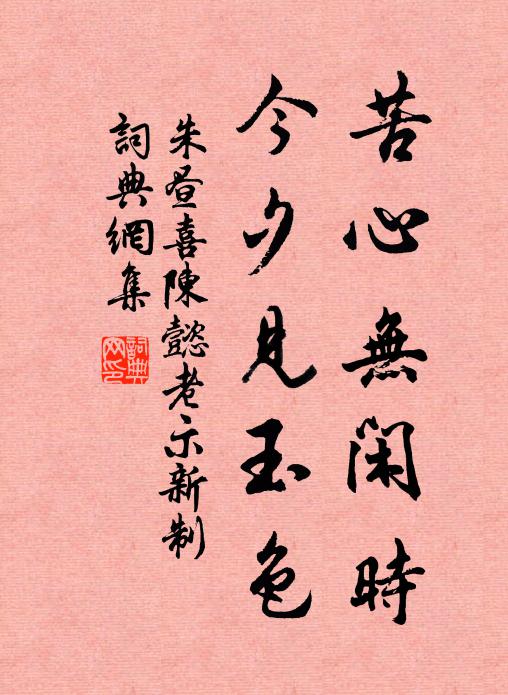 苦心無閑時
今夕見玉色
朱晝喜陳懿老示新制
詞典網集
詞典網印